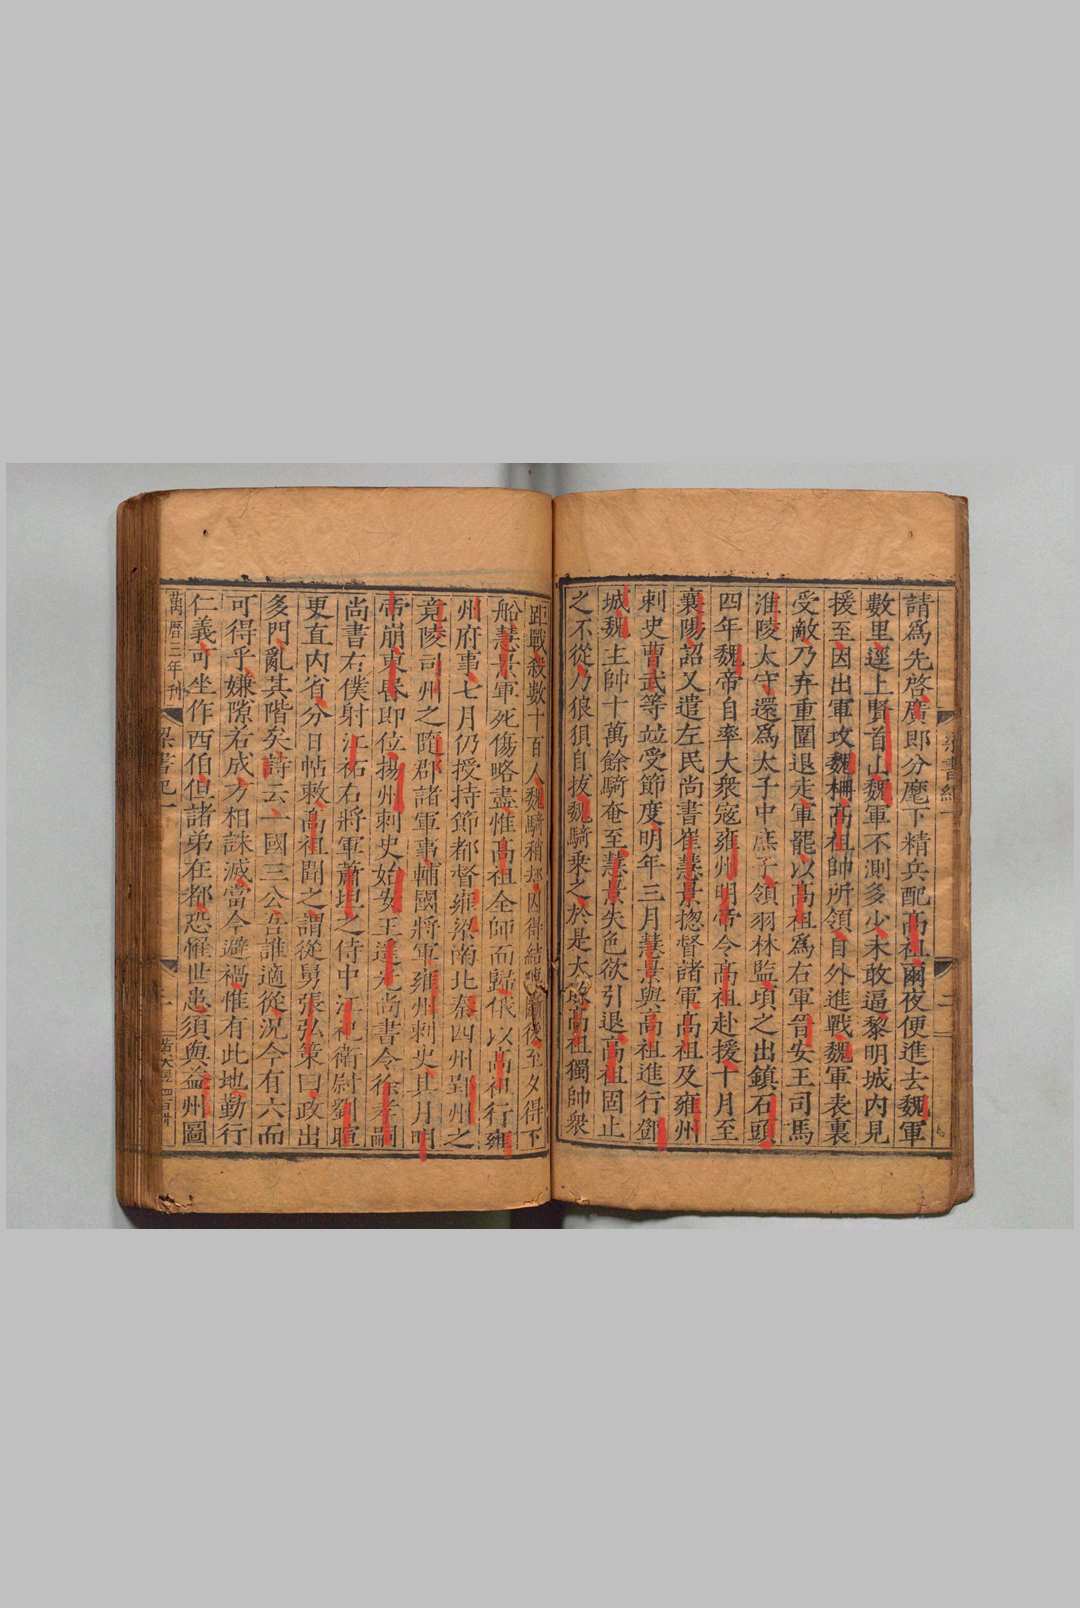 請爲先啓廣即分麾下精兵配高祖爾夜便進去魏軍
數里逕上賢首山魏軍不測多少未敢逼黎明城内見
援至因出軍攻魏柵高祖帥所領自外進戰魏軍表裏
受敵乃弃重圍退走軍罷以高祖爲右軍晉安王司馬
淮陵太守還爲太子中庶子領羽林監頃之出鎮石頭
四年魏帝自率大衆寇雍州明帝令高祖赴援十月至
襄陽詔又遣左民尚書崔慧景揔督諸軍高祖及雍州
刺史曹武等竝受節度明年三月慧景與高祖進行鄧
城魏主帥十萬餘騎奄至慧景失色欲引退高祖固止
之不從乃狼狽自拔魏騎乘之於是大敗高祖獨帥衆
距戰殺數十百人魏騎稍却因得結陣斷後至夕得下
船慧景軍死傷略盡惟高祖全師而歸俄以高祖行雍
州府事七月仍授持節都督雍梁南北秦四州郢州之
竟陵司州之隨郡諸軍事輔國將軍雍州刺史其月明
帝崩東昏即位揚州刺史始安王遥光尚書令徐孝嗣
尚書右僕射江祏右將軍蕭坦之侍中江祀衛尉劉暄
更直内省分日帖敕高祖聞之謂從舅張弘策曰政出
多門亂其階矣詩云一國三公吾誰適從况今有六而
可得乎嫌隙若成方相誅滅當今避禍惟有此地勤行
仁義可坐作西伯但諸弟在都恐惟世患須與益州圖
萬曆三年刊
梁書紀一
二